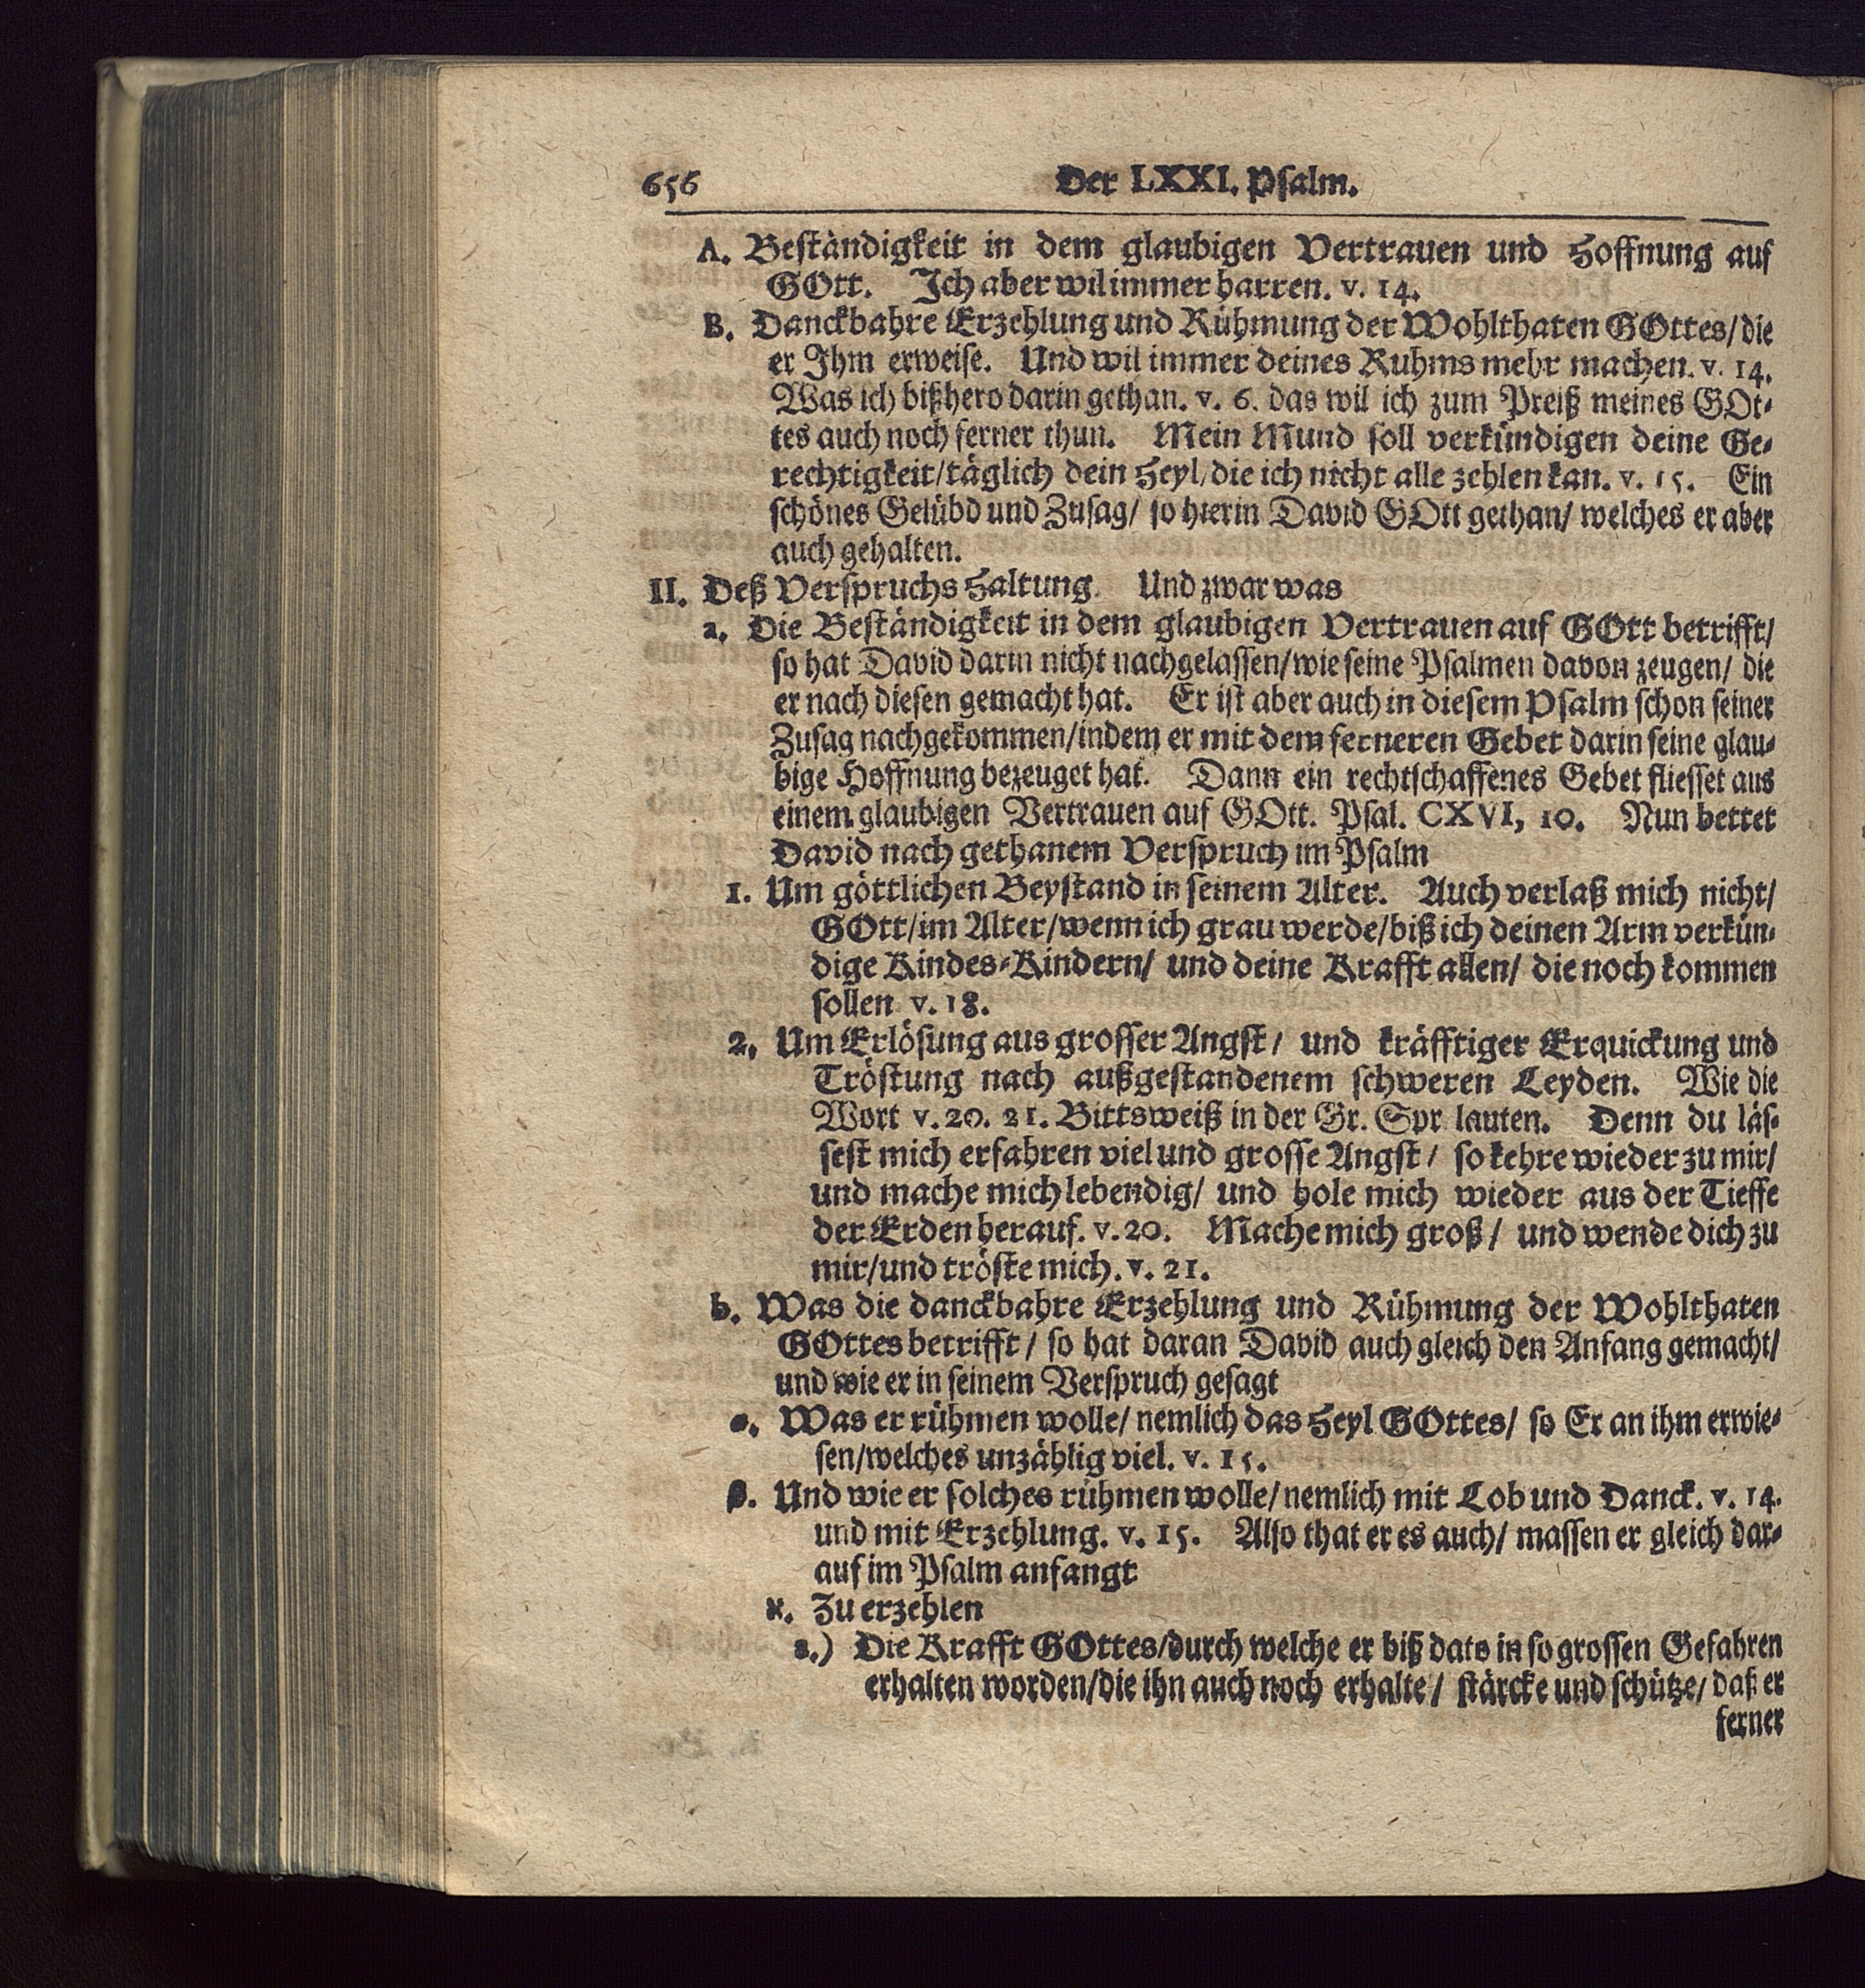 656 Der LXXI. Psalm.
A. Beständigkeit in dem glaubigen Vertrauen und Hoffnung auf
GOtt. Ich aber wil immer harren. v. 14.
B. Danckbahre Erzehlung und Rühmung der Wohlthaten GOttes/ die
er Ihm erweise. Und wil immer deines Ruhms mehr machen. v. 14.
Was ich bißhero darin gethan. v. 6. das wil ich zum Preiß meines GOt-
tes auch noch ferner thun. Mein Mund soll verkündigen deine Ge-
rechtigkeit/ täglich dein Heyl/ die ich nicht alle zehlen kan. v. 15. Ein
schönes Gelübd und Zusag/ so hierin David GOtt gethan/ welches er aber
auch gehalten.
II. Deß Verspruchs Haltung. Und zwar was
a. Die Beständigkeit in dem glaubigen Vertrauen auf GOtt betrifft/
so hat David darin nicht nachgelassen/ wie seine Psalmen davon zeugen/ die
er nach diesen gemacht hat. Er ist aber auch in diesem Psalm schon seiner
Zusag nachgekommen/ indem er mit dem ferneren Gebet darin seine glau-
bige Hoffnung bezeuget hat. Dann ein rechtschaffenes Gebet fliesset aus
einem glaubigen Vertrauen auf GOtt. Psal. CXVI, 10. Nun bettet
David nach gethanem Verspruch im Psalm
1. Um göttlichen Beystand in seinem Alter. Auch verlaß mich nicht/
GOtt/ im Alter/ wenn ich grau werde/ biß ich deinen Arm verkün-
dige Kindes-Kindern/ und deine Krafft allen/ die noch kommen
sollen v. 18.
2. Um Erlösung aus grosser Angst/ und kräfftiger Erquickung und
Tröstung nach außgestandenem schweren Leyden. Wie die
Wort v. 20. 21. Bittsweiß in der Gr. Spr lauten. Denn du läs-
sest mich erfahren viel und grosse Angst/ so kehre wieder zu mir/
und mache mich lebendig/ und hole mich wieder aus der Tieffe
der Erden herauf. v. 20. Mache mich groß/ und wende dich zu
mir/ und tröste mich. v. 21.
b. Was die danckbahre Erzehlung und Rühmung der Wohlthaten
GOttes betrifft/ so hat daran David auch gleich den Anfang gemacht/
und wie er in seinem Verspruch gesagt
α. Was er rühmen wolle/ nemlich das Heyl GOttes/ so Er an ihm erwie-
sen/ welches unzählig viel. v. 15.
β. Und wie er solches rühmen wolle/ nemlich mit Lob und Danck. v. 14.
und mit Erzehlung. v. 15. Also that er es auch/ massen er gleich dar-
auf im Psalm anfangt
א. Zu erzehlen
a.) Die Krafft GOttes/ durch welche er biß dato in so grossen Gefahren
erhalten worden/ die ihn auch noch erhalte/ stärcke und schütze/ daß er
ferner